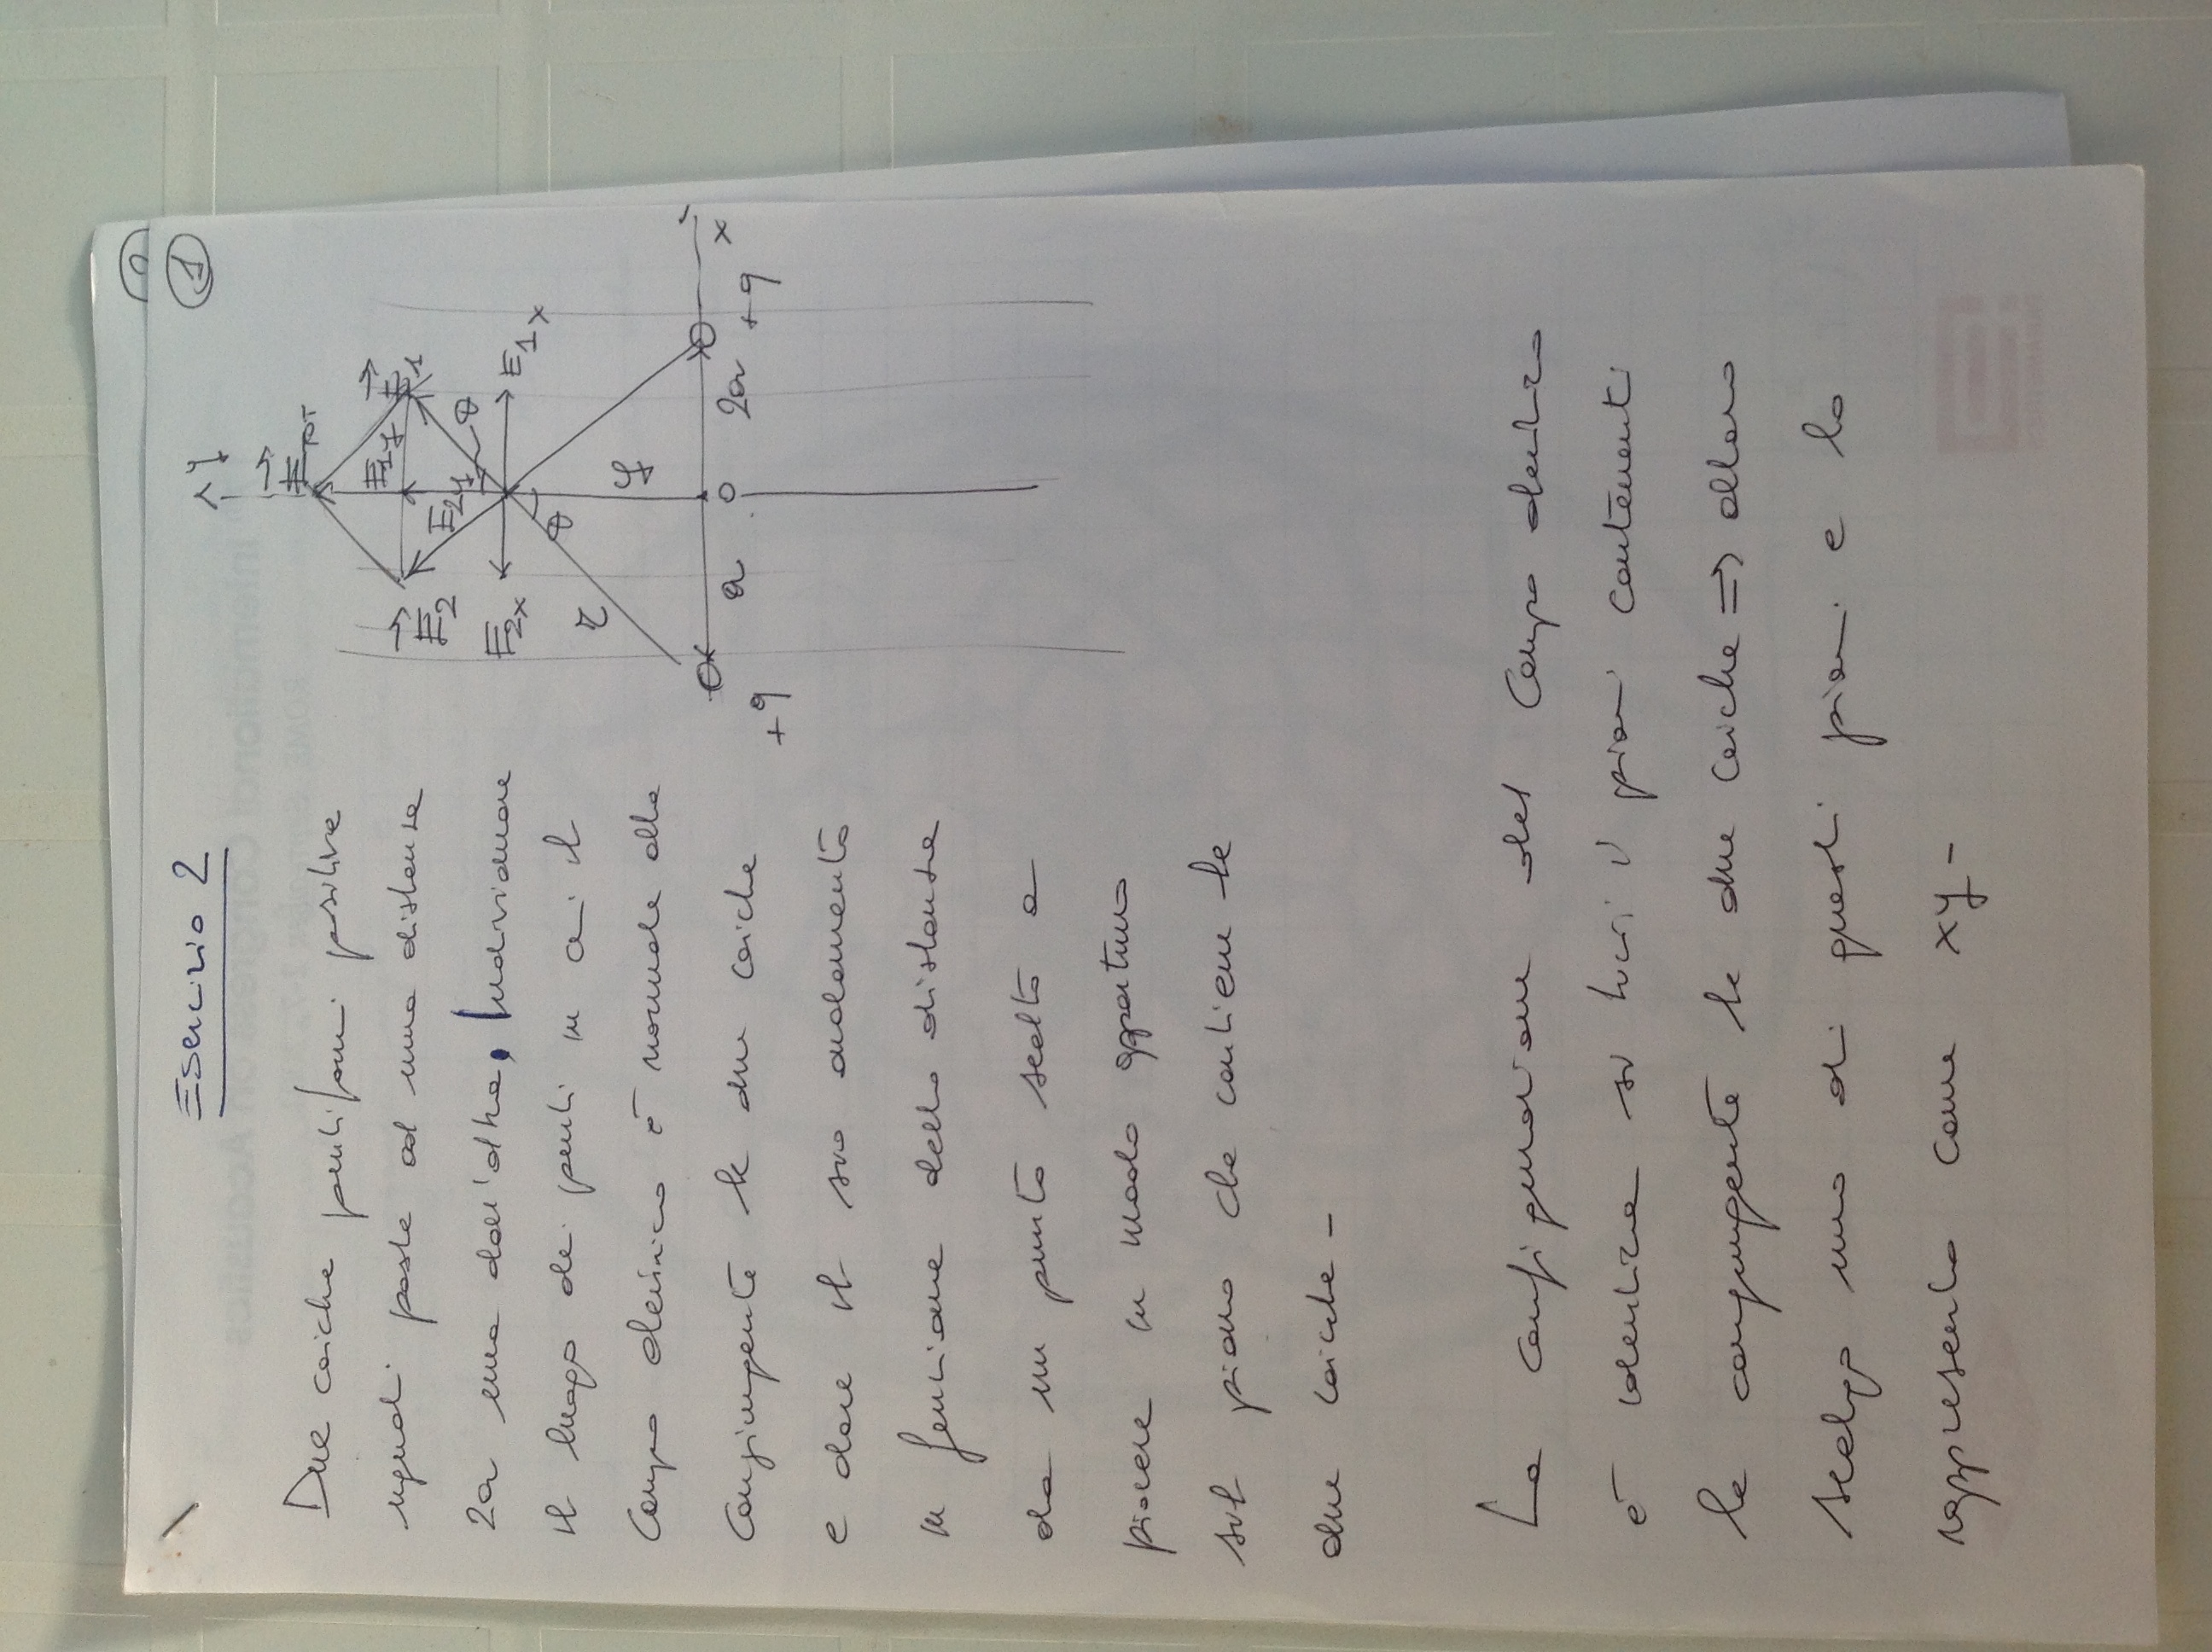 Esercizio 2
1
Due cariche puntiformi positive
uguali poste ad una distanza
2a una dall'altra, Individuare
il luogo dei punti in cui il
Campo elettrico è normale alla
Congiungente le due cariche
e dare il suo andamento
in funzione della distanza
da un punto scelto a
piacere in modo opportuno
sul piano che contiene le
due cariche -
y
E TOT
E1y
E1
E2
E2y
θ
E2x
E1x
θ
r
y
a
o
2a
x
+q
+q
La configurazione del Campo elettrico
è identica su tutti i piani contenenti
la congiungente le due cariche => allora
scelgo uno di questi piani e lo
rappresento come xy -